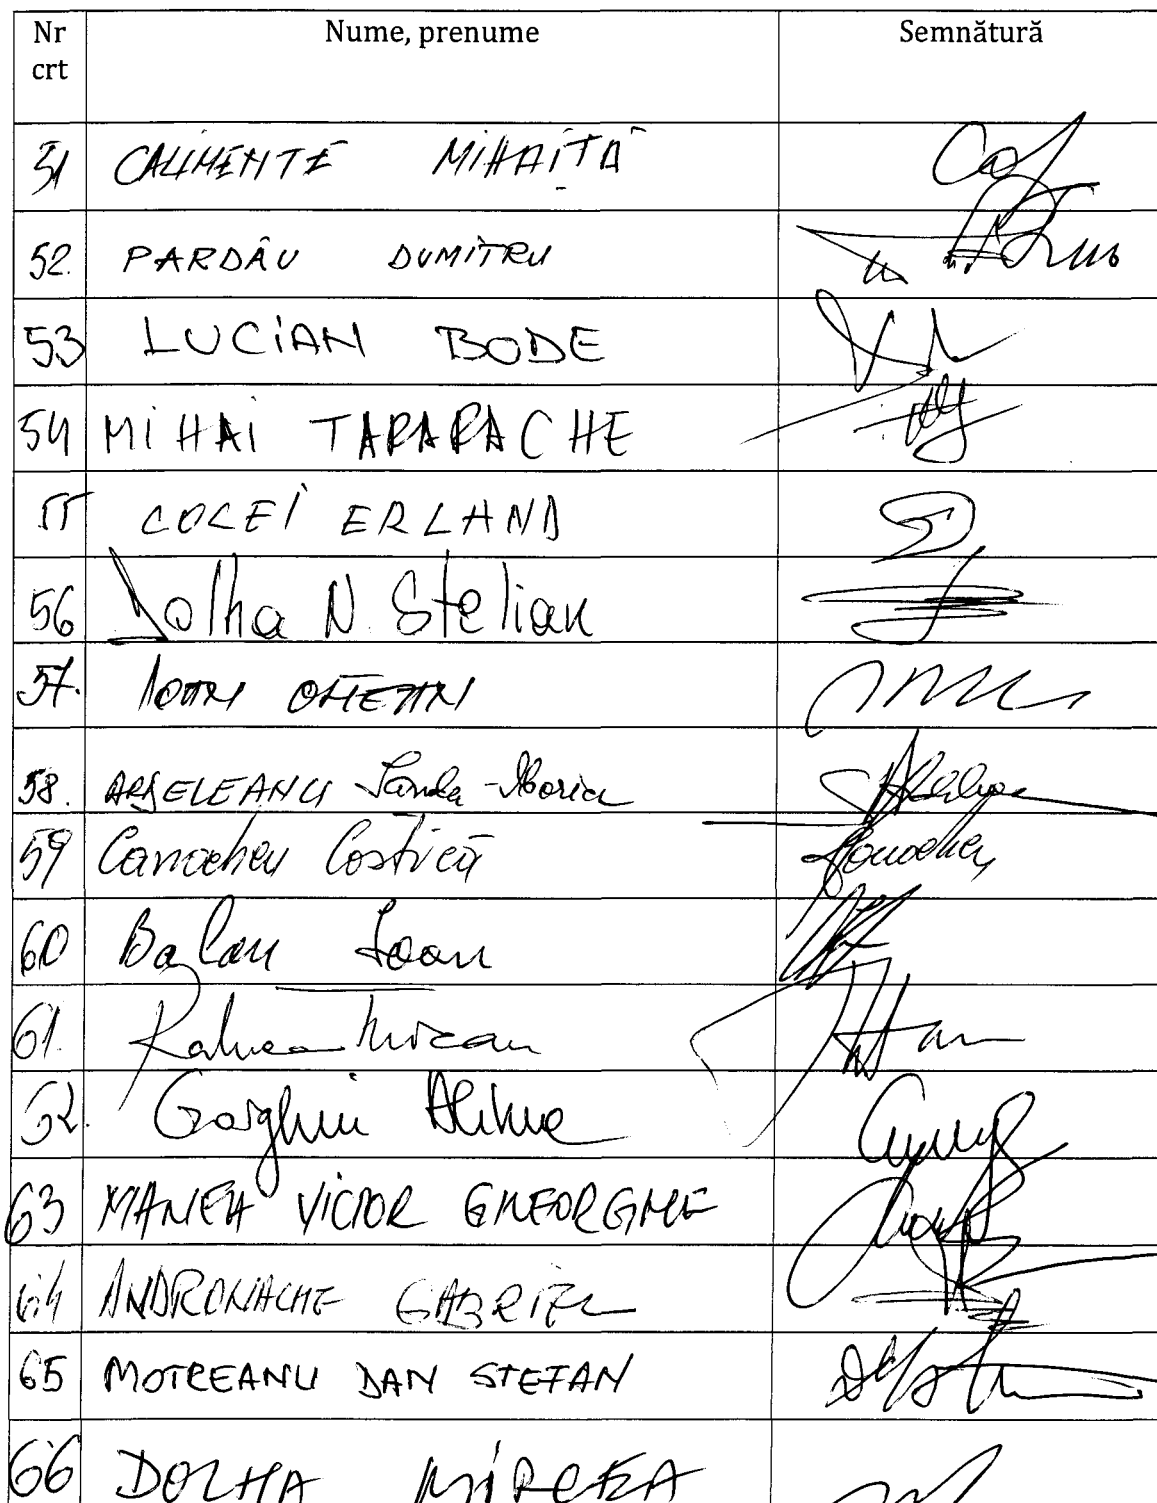 Nr crt Nume, prenume Semnătură
51 CALIMENTE MIHĂIȚĂ
52. PARDĂU DUMITRU
53 LUCIAN BODE
54 MIHAI TARARACHE
55 COCEI ERLAND
56 Dolha N. Stelian
57. IOAN OLTEAN
58. ARGELEANU Sanda-Maria
59 Canacheu Costică
60 Balan Ioan
61. Raluca Turcan
62. Gorghiu Alina
63 MANEA VICTOR GHEORGHE
64 ANDRONACHE GABRIEL
65 MOTREANU DAN STEFAN
66 DOLHA MIRCEA